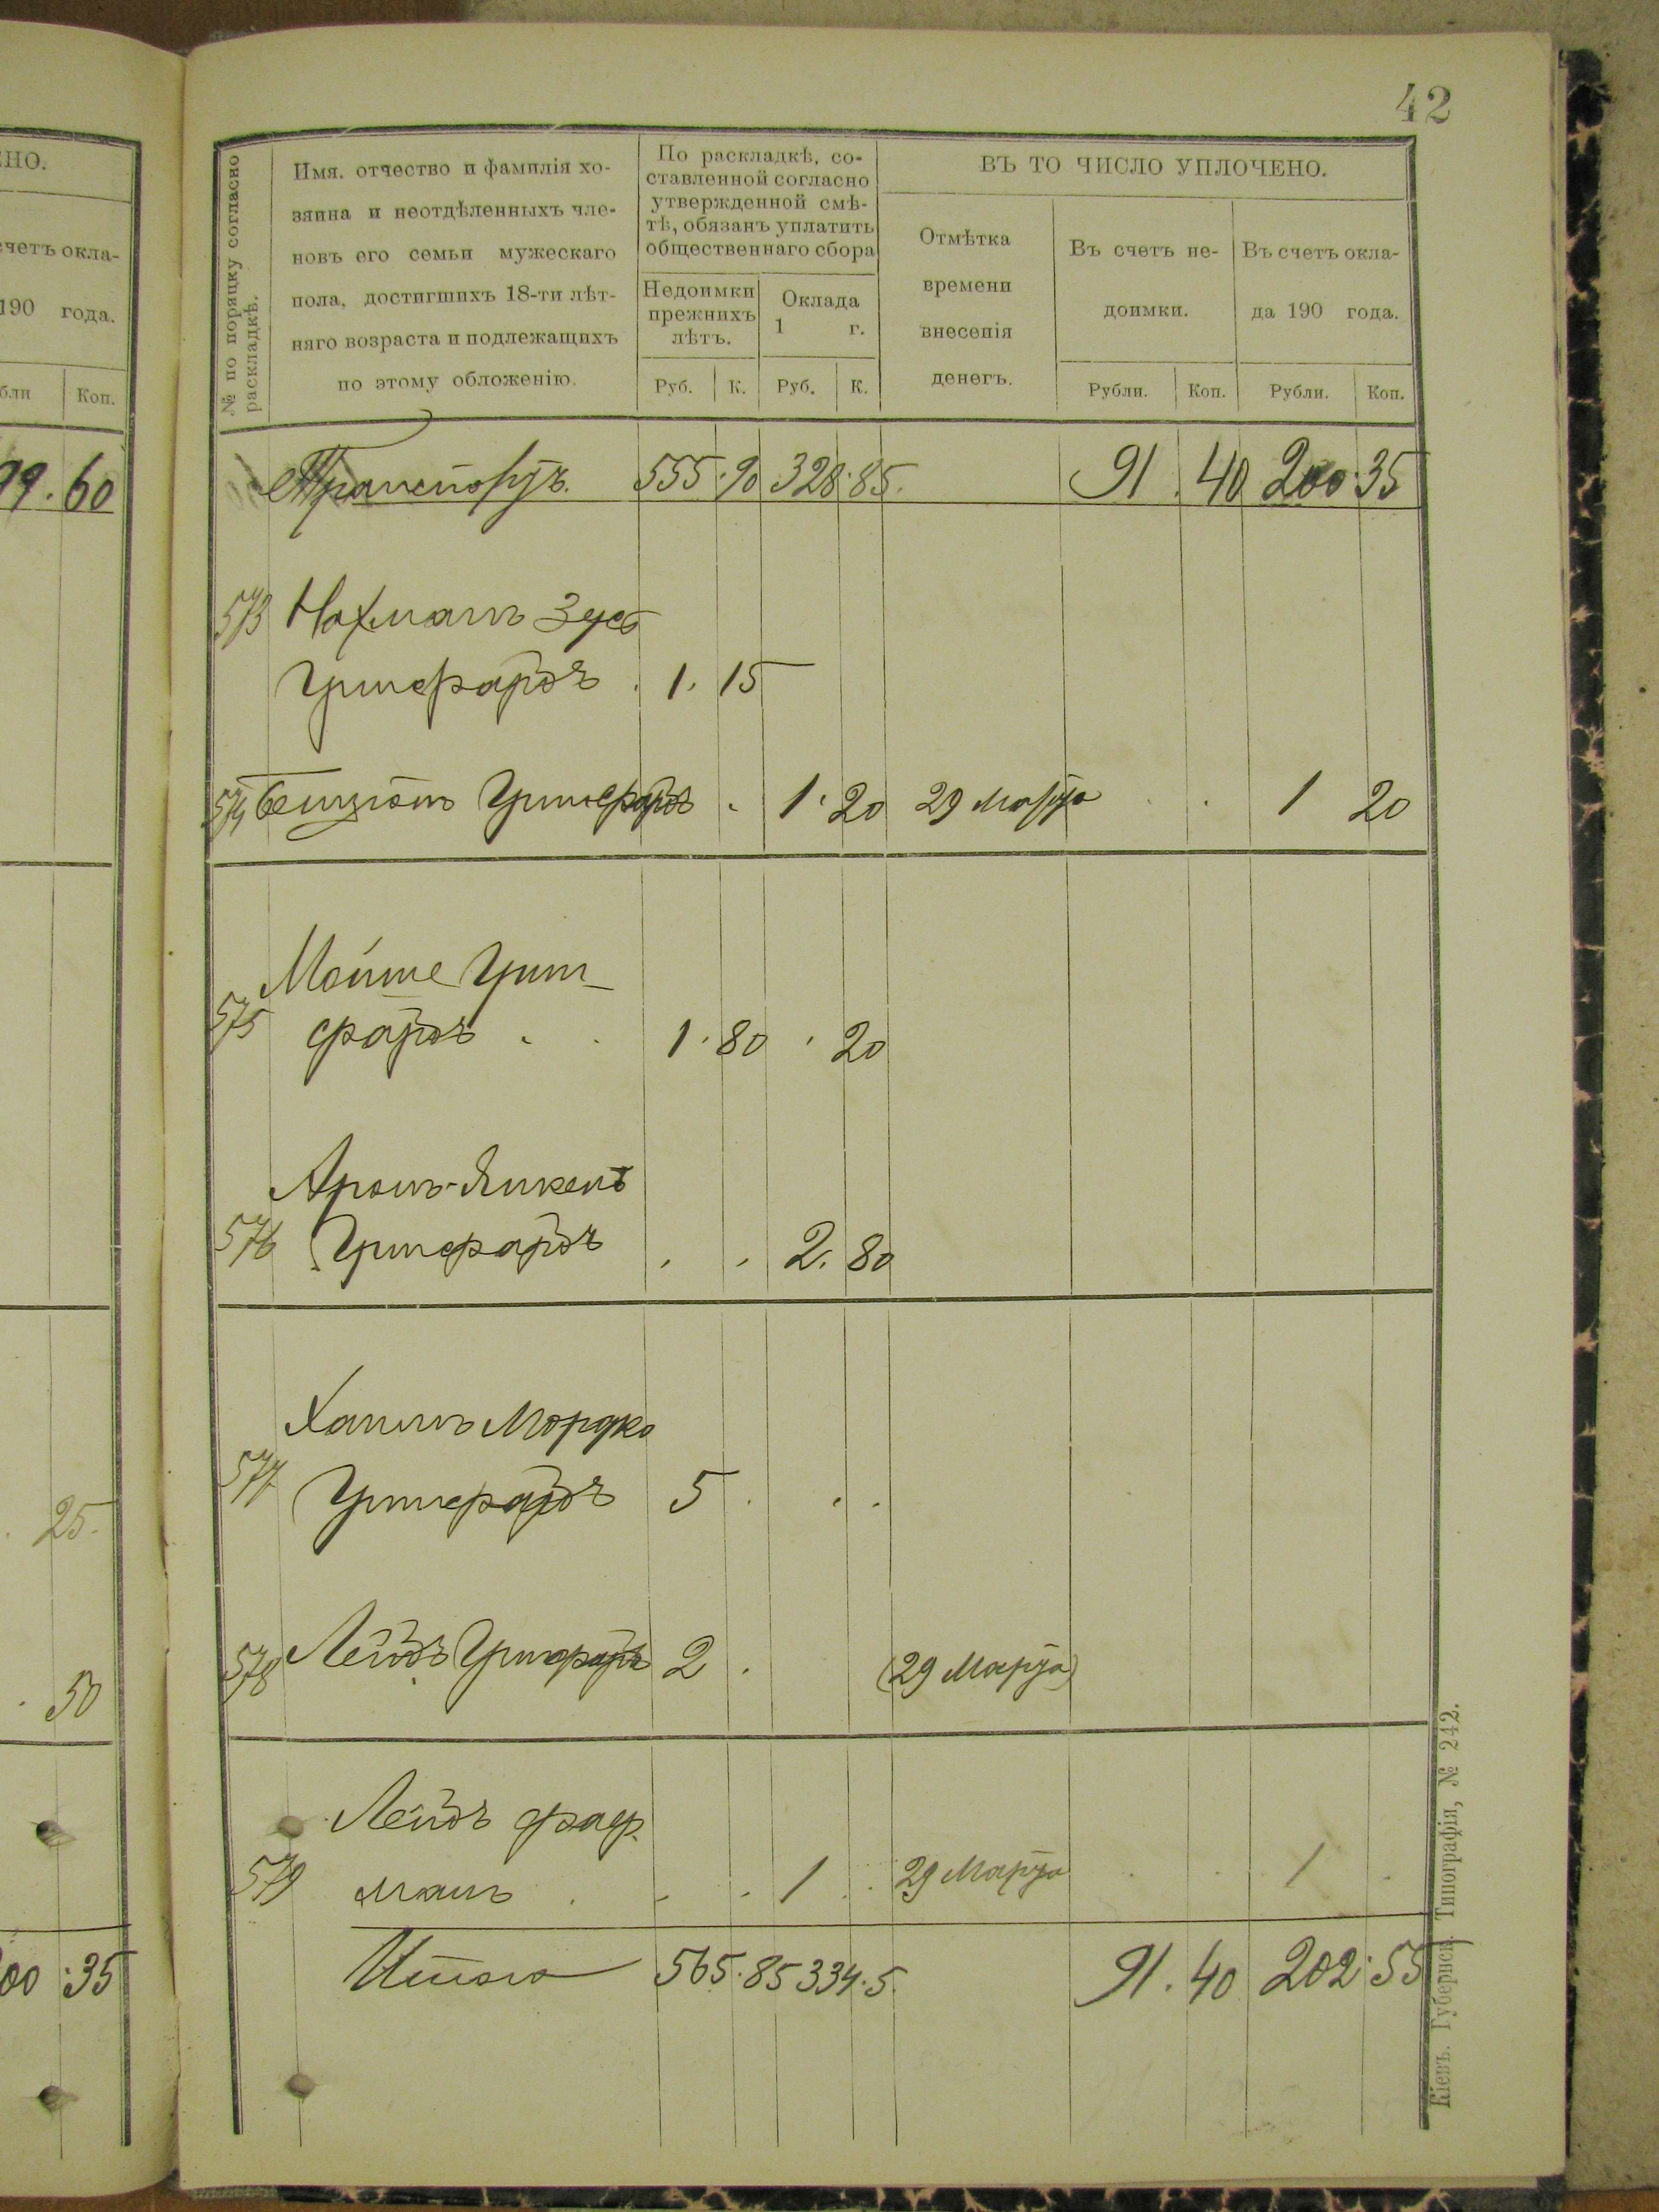 42
ЕНО.
счетъ окла-
190 года.
бли Коп.
99.60
25.
50
200:35
№ по поряцку согласно
раскладкѣ.
Имя. отчество и фамилія хо-
зяина и неотдѣленныхъ чле-
новъ его семьи мужескаго
пола, достигшихъ 18-ти лѣт-
няго возраста и подлежащихъ
по этому обложенію.
По раскладкѣ, со-
ставленной согласно
утвержденной смѣ-
тѣ, обязанъ уплатить
общественнаго сбора
Недоимки
прежнихъ
лѣтъ.
Оклада
1 г.
Руб. К. Руб. К.
ВЪ ТО ЧИСЛО УПЛОЧЕНО.
Отмѣтка
времени
внесенія
денегъ.
Въ счетъ не-
доимки.
Въ счетъ окла-
да 190 года.
Рубли. Коп. Рубли. Коп.
Транспортъ. 555.90 328.85. 91.40 200.35
573 Нахманъ Зусь
Гринфартъ . 1.15
574 Бенціонъ Гринфартъ . 1.20 29 Марта . . 1 20
Мойше Грин-
575 фартъ . . 1.80 . 20
Аронъ-Янкель
576 Гринфартъ . . 2.80
Хаимъ Мордко
577 Гринфартъ 5 . . .
578 Лейбъ Гринфартъ 2 . (29 Марта)
Лейбъ
579 манъ . . . 1 . 29 Марта . . 1 .
Итого 565.85 334.5. 91.40 202.55
Кіевъ. Губернск. Типографія, № 242.